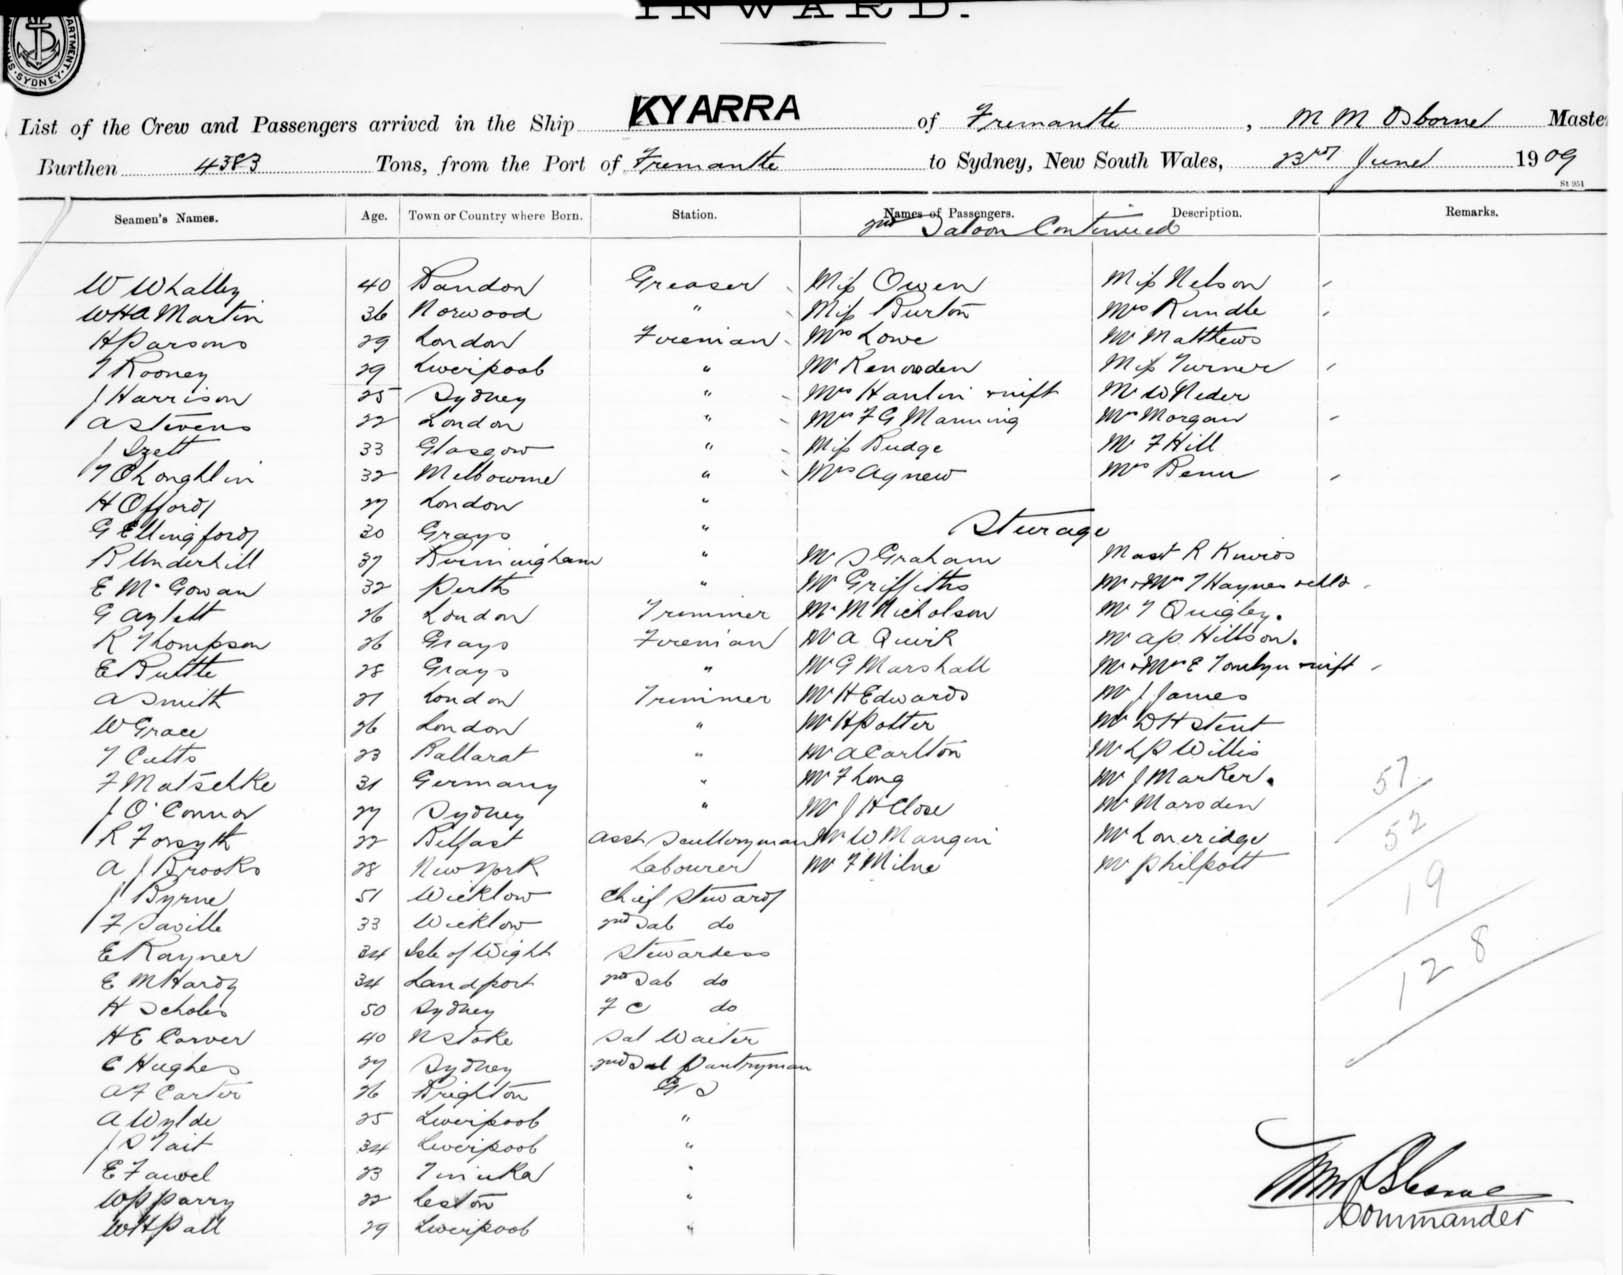 INWARD.
DEPARTMENT
SYDNEY
List of the Crew and Passengers arrived in the Ship KYARRA of Fremantle, M M Osborne Master
Burthen 4383 Tons, from the Port of Fremantle to Sydney, New South Wales, 23rd June 1909
St 951
Seamen's Names. Age. Town or Country where Born. Station. Names of Passengers. Description. Remarks.
2nd Saloon Continued
W Whalley 40 Greaser Miss Owen Miss Nelson
WHA Martin 36 Norwood " Miss Burton Mrs Rundle
H Parsons 29 London Fireman Mrs Lowe Mr Matthews
T Rooney 29 Liverpool " Mr Renowden Miss Turner
J Harrison 25 Sydney " Mrs Hanlin & inft Mr W Neder
A Stevens 22 London " Mrs F G Manning Mrs Morgan
J Izett 33 Glasgow " Miss Budge Mr F Hill
T O'Loughlin 32 Melbourne " Mrs Agnew Mrs Benn
H Offord 27 London "
G Ellingford 30 Grays " Steerage
R Underhill 37 Birmingham " Mr S Graham Mast R
E McGowan 32 Perth " Mr Griffiths Mr & Mrs T Haynes & chld
G Aylett 26 London Trimmer Mr M Nicholson Mr T Quigley.
R Thompson 26 Grays Fireman Mr A Quirk Mr Hillson.
E Buttle 28 Grays " Mr G Marshall Mr & Mrs E Tomlyn & inft
A Smith 21 London Trimmer Mr H Edwards Mr J James
W Grace 26 London " Mr H Potter Mr D H Stent
T Cutts 23 Ballarat " Mr A Carlton Mr L P Willis
F Matschke 31 Germany " Mr F Long Mr J Marker.
J O'Connor 27 Sydney " Mr J H Close Mr Marsden
R Forsyth 22 Belfast Asst Sculleryman Mr W Mangin Mr Loneridge
A J Brooks 28 New York Labourer Mr F Milne Mr Philpott
J Byrne 51 Wicklow Chief Steward
F Saville 33 Wicklow 2nd Sal do
E Rayner 34 Isle of Wight Stewardess
E M Hardy 34 Landport 2nd Sal do
H Scholes 50 Sydney F C do
H E Carver 40 N Stoke Sal Waiter
C Hughes 27 Sydney 2nd Sal Pantryman
A F Carter 26 Brighton G S
A Wylde 25 Liverpool "
J S Tait 34 Liverpool "
E Fawel 23 "
W P Parry 22 Leston "
W H Pall 29 Liverpool "
57
52
19
128
M M Osborne
Commander